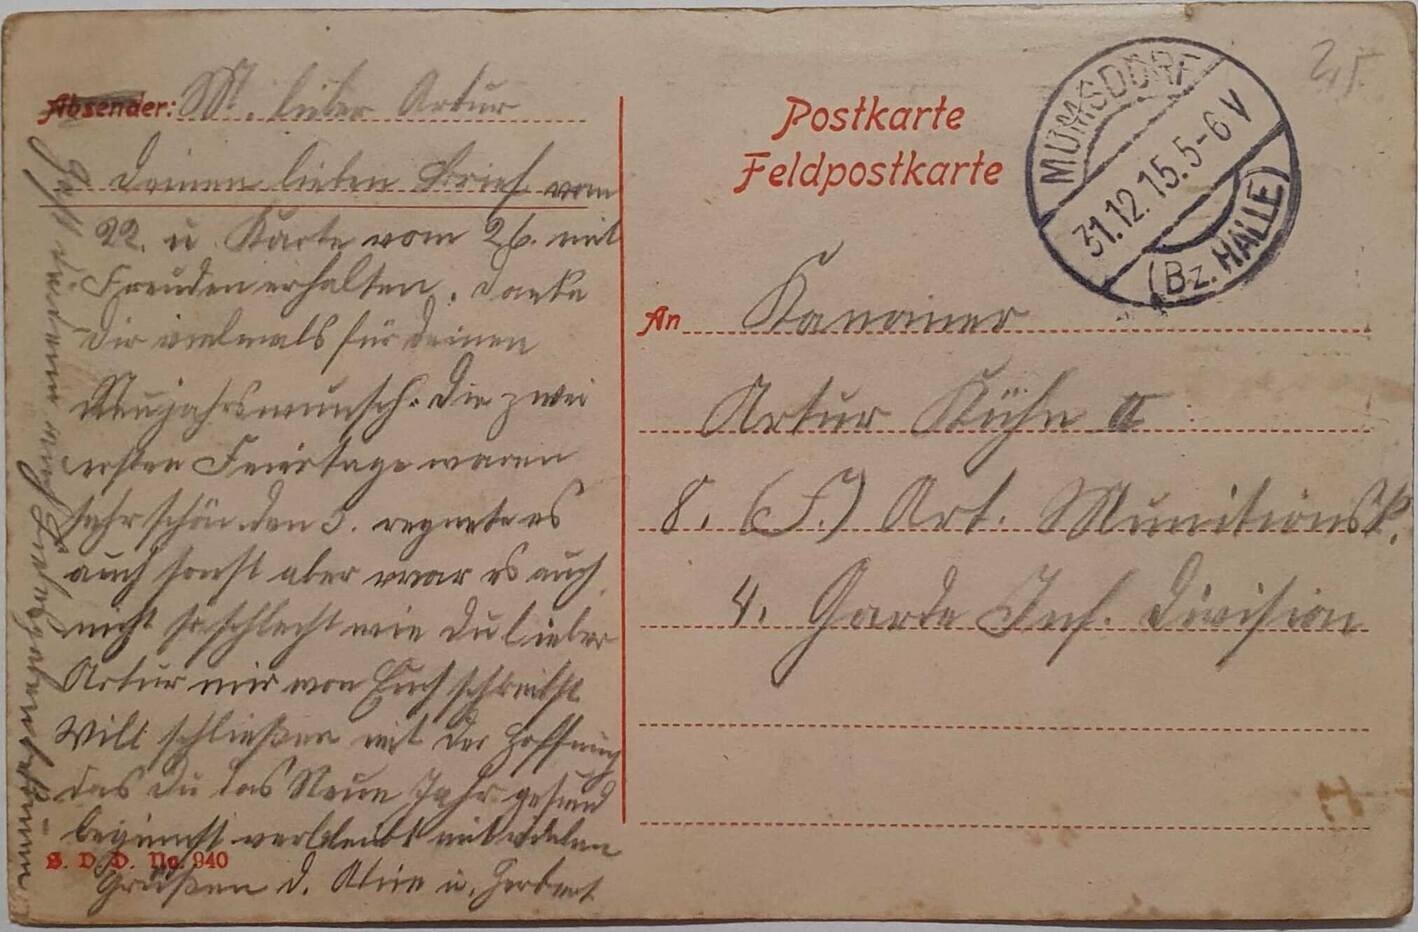 Absender: M. lieber Artur
Deinen lieben Brief vom
22. u Karte vom 26. mit
Freuden erhalten. Danke
Dir vielmals für deinen
Neujahrswunsch. Die zwei
ersten Feiertage waren
sehr schön den 3. regnete es
auch sonst aber war es auch
nicht so schlecht wie Du lieber
Artur mir von Euch schreibst
Will schließen mit der Hoffnung
das Du das Neue Jahr gesund
beginnst verbleibt mit vielen
Grüßen d. Aline u. Herbert
S. D. D. No. 940
Hast du denn auch
Postkarte
Feldpostkarte
MUMSDORF
31.12.15.5-6V
(Bz. HALLE)
An Kanonier
Artur Kühn II
8. (F.) Art. Munitionsk.
4. Garde Inf. Division